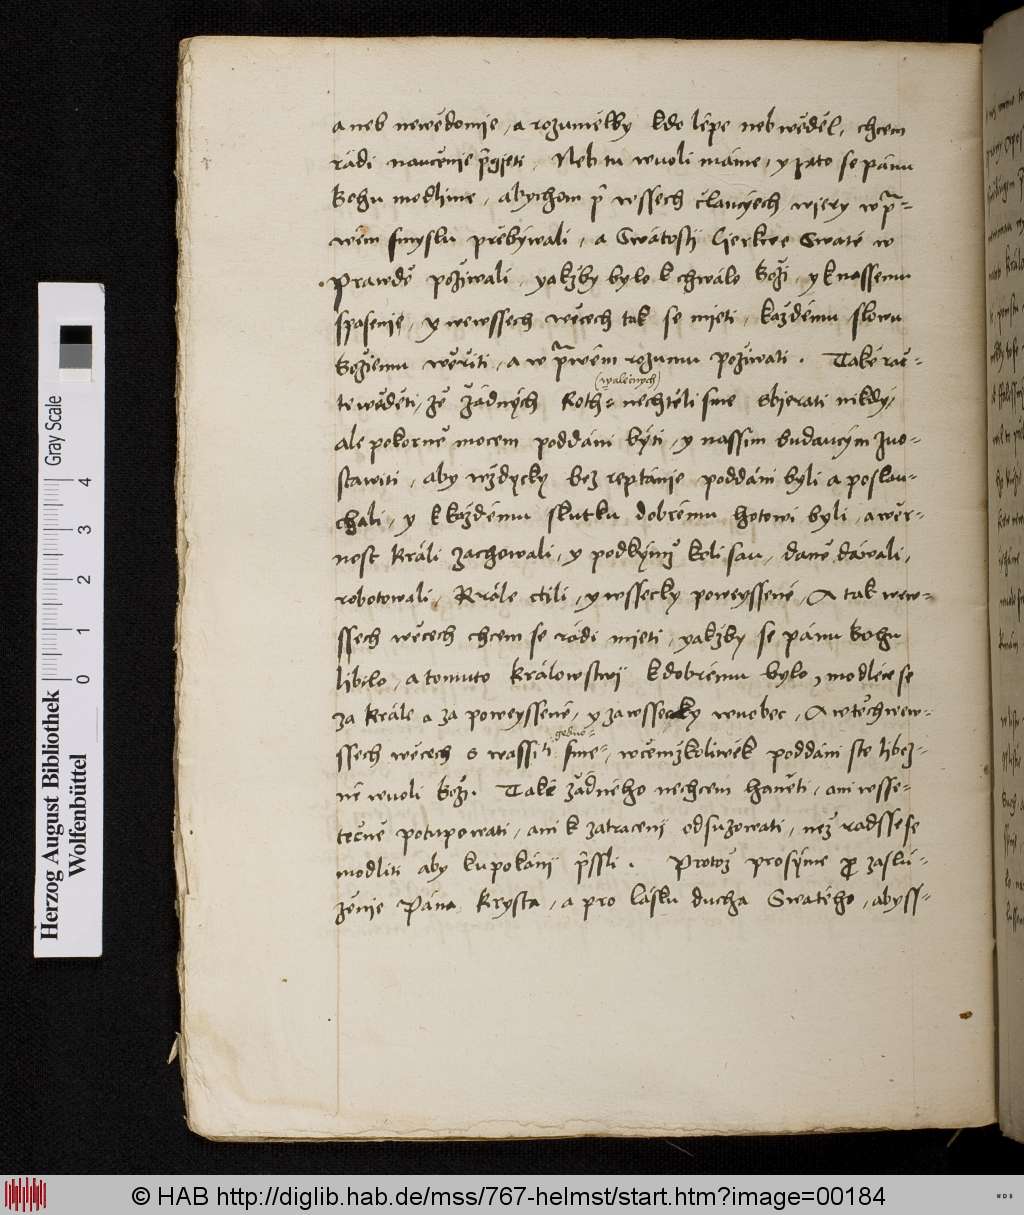 a neb newědomie, a rozumělby kdo lépe neb wěděl, chcem
rádi naučenie přijieti. Neb tu wuoli máme, y zato se pánu
Bohu modlíme, abychom při wssech člancyech wiery w pra=
wém smyslu přebýwali, a Swátosti Cierkwe Swaté w
Prawdě požíwali, yakžby bylo k chwále Boží, y k nassemu
spasenie, y we wssech wěcech tak se mjeti, každému slowu
Božiemu wěřiti, a w prawém rozumu požíwati. Také rač=
te wěděti, že žádných Roth= (walečných) nechtěli sme sbierati nikdy,
ale pokorně mocem poddáni býti, y nassim budaucým zuo=
stawiti, aby wždycky bez reptánie poddáni byli a poslau=
chali, y k každému skutku dobrému hotowi byli, a wěr=
nost Králi zachowali, y podkýmž koli sau, daně dáwali,
robotowali, Krále ctili, y wssecky poweyssené, A tak we w=
ssech wěcech chcem se rádi mjeti, yakžby se pánu Bohu
libilo, a tomuto Králowstwij k dobrému bylo, modléce se
za Krále a za poweyssené, y za wssecky wuobec, A w těch we w=
ssech wěcech s wassi  sme=, w čemžkoliwěk poddáni ste libez=
né wuoli Boží. Také žádného nechcem haněti, ani wsse=
tečně potupowati, ani k zatracenij odsuzowati, než radsse se
modliti aby ku pokánij přissli. Protož prosýme pro zaslú=
ženie Pána Krysta, a pro lásku ducha Swatého, abyss=
Herzog August Bibliothek
Wolfenbüttel
0 1 2 3 4
Gray Scale
© HAB http://diglib.hab.de/mss/767-helmst/start.htm?image=00184